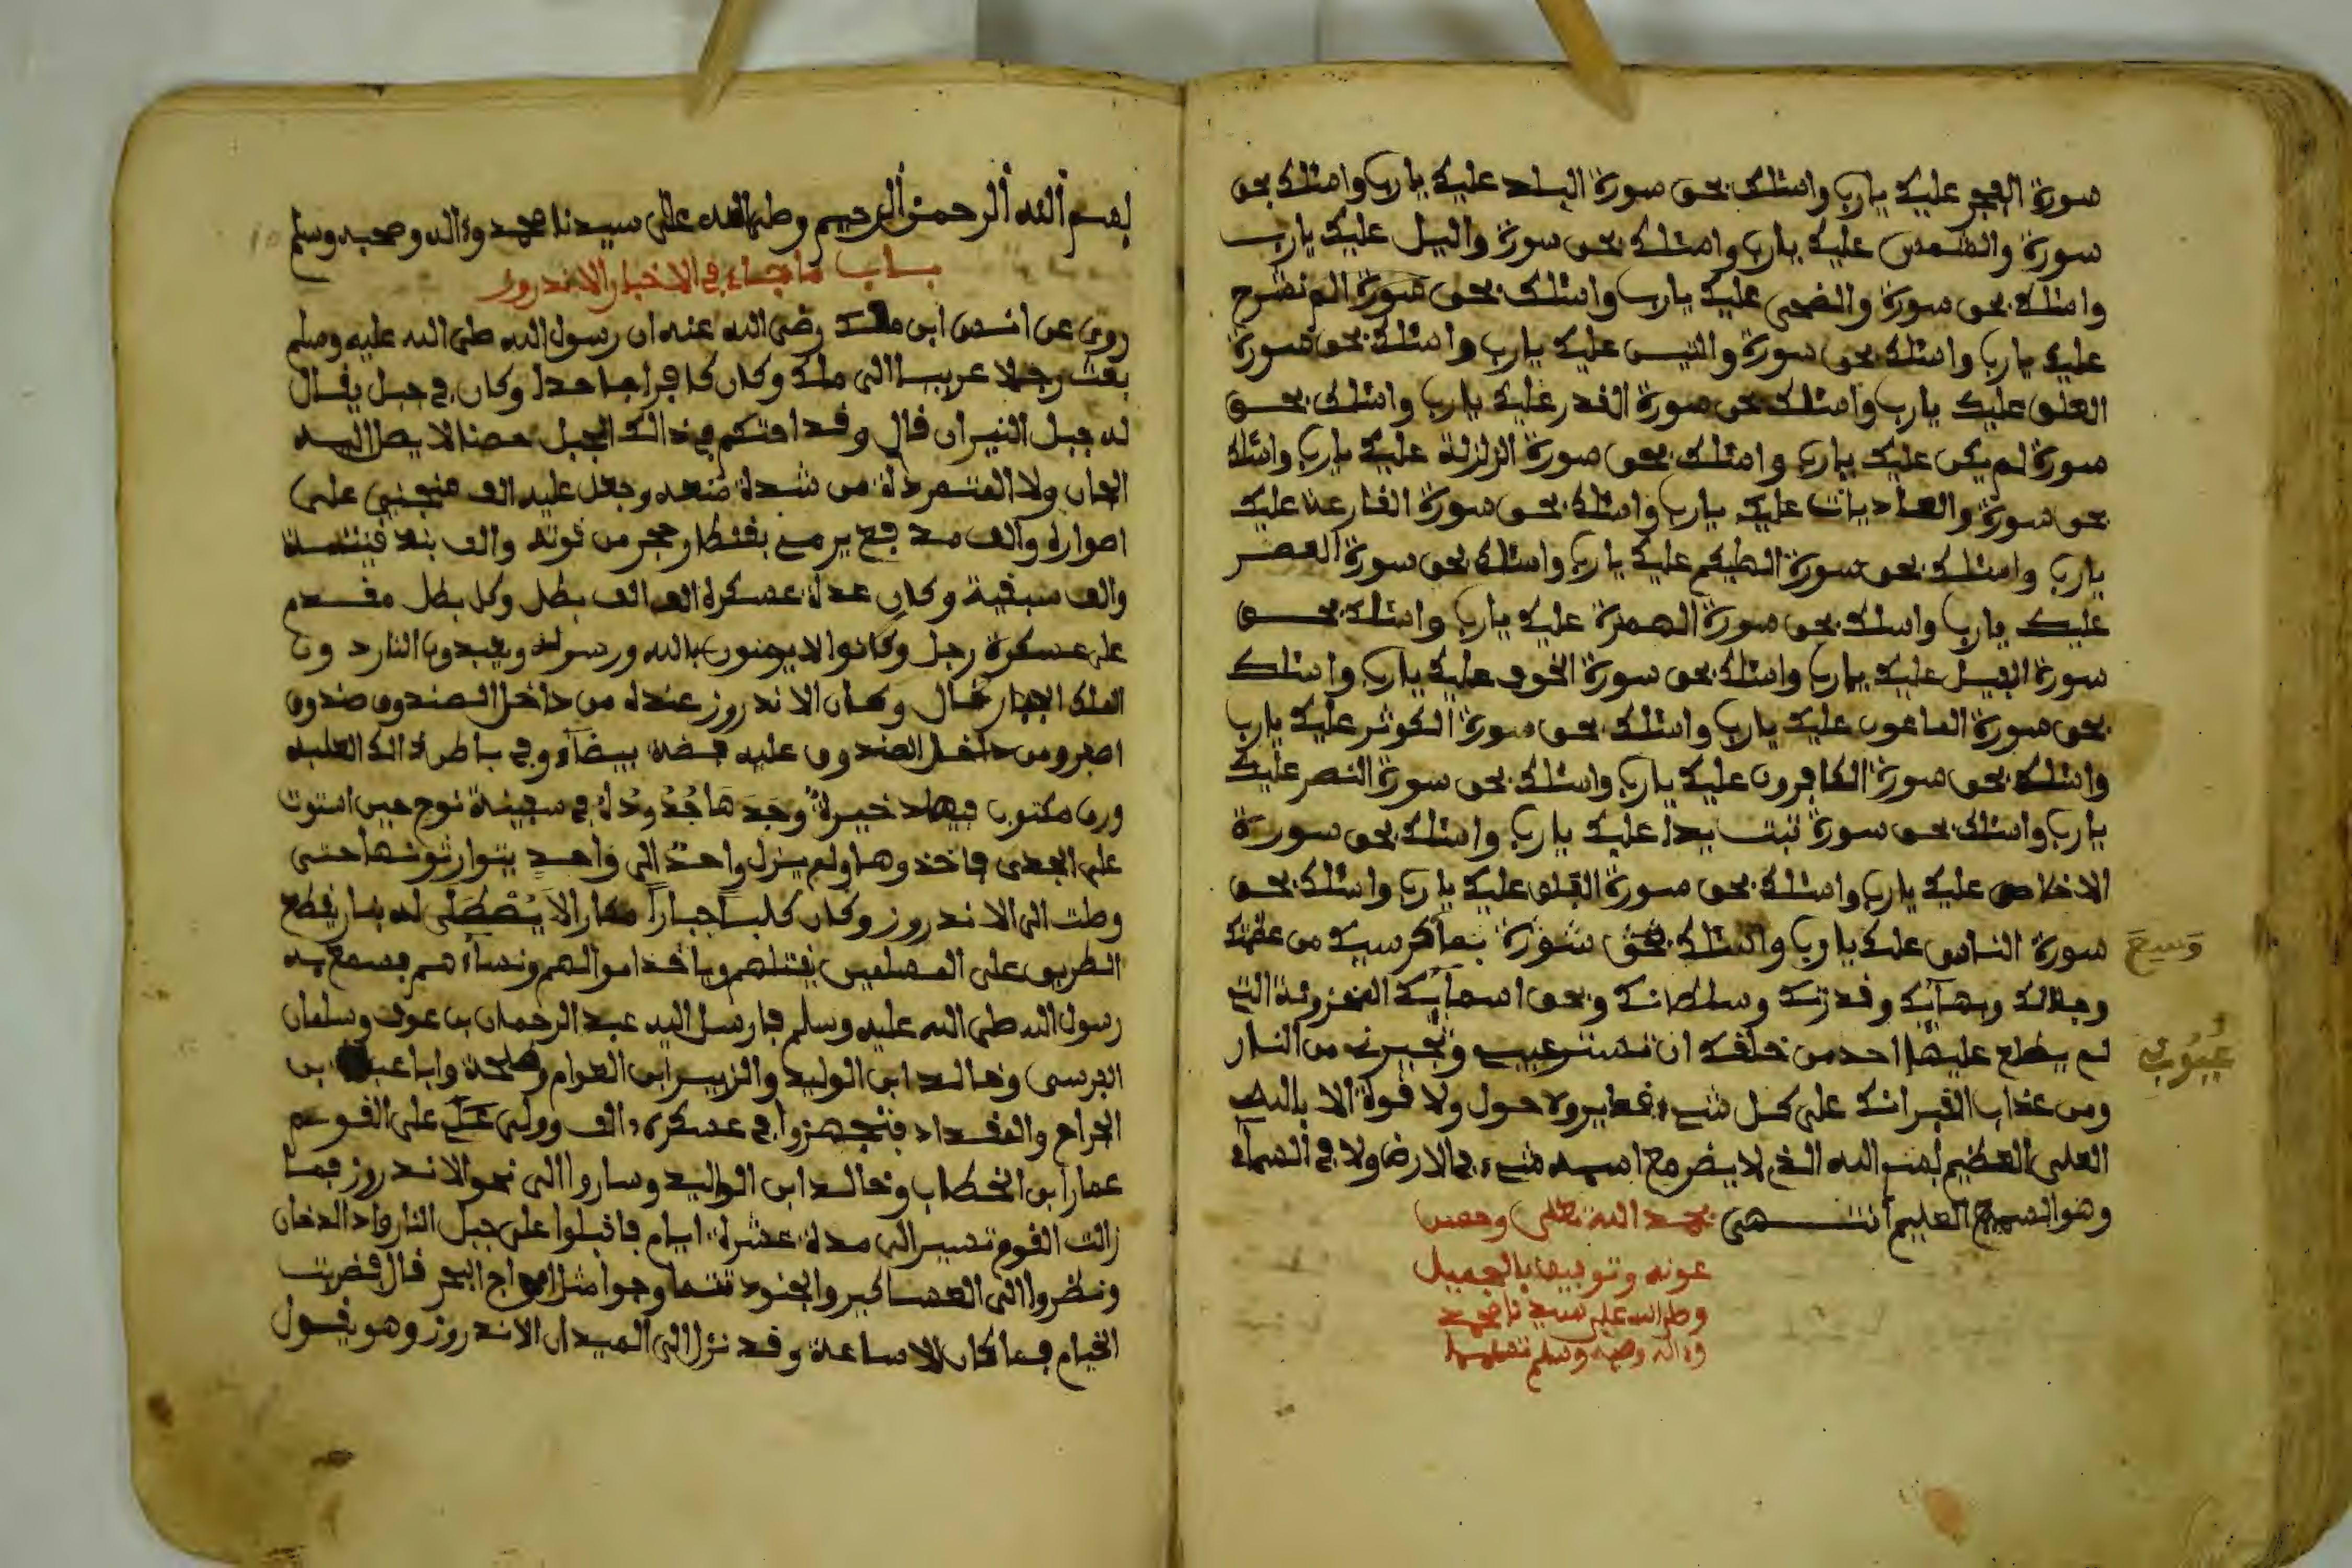 سورة الفجر عليك يارب واسئلك بحق سورة البلد عليك يارب واسئلك بحق
سورة والشمس عليك يارب واسئلك بحق سورة واليل عليك يارب
واسئلك بحق سورة والضحى عليك يارب واسئلك بحق سورة الم نشرح
عليك يارب واسئلك بحق سورة والتين عليك يارب واسئلك بحق سورة
العلق عليك يارب واسئلك بحق سورة القدر عليك يارب واسئلك بحق
سورة لم يكن عليك يارب واسئلك بحق سورة الزلزلة عليك يارب واسئلك
بحق سورة والعاديات عليك يارب واسئلك بحق سورة القارعة عليك
يارب واسئلك بحق سورة الهيكم عليك يارب واسئلك بحق سورة العصر
عليك يارب واسلك بحق سورة الهمزة عليك يارب واسئلك بحق
سورة الفيل عليك يارب واسئلك بحق سورة الخوف عليك يارب واسئلك
بحق سورة الماعون عليك يارب واسئلك بحق سورة الكوثر عليك يارب
واسئلك بحق سورة الكافرون عليك يارب واسئلك بحق سورة النصر عليك
يارب واسئلك بحق سورة تبت يدا عليك يارب واسئلك بحق سورة
الاخلاص عليك يارب واسئلك بحق سورة الفلق عليك يارب واسئلك بحق
سورة الناس عليك يارب واسئلك بحق بما كرسيك من عظمتك
وسع
وجلالك وبهآئك وقدرتك وسلطانك وبحق اسمآئك المخزونة التي
لم يطلع عليها احد من خلقك ان تستر عيبي وتجيرني من النار
عيوب
ومن عذاب القبر انك على كل شيء قدير ولا حول ولا قوة الا بالله
العلي العظيم بسم الله الذي لا يضر مع اسمه شيء في الارض ولا في السماء
وهو السميع العليم انتهى بحمد الله تعلى وحسن
عونه وتوفيفه بالجميل
وصلى الله على سيدنا محمد
وءاله وصحبه وسلم تسليما
بسم الله الرحمن الرحيم وصلى الله على سيدنا محمد وءاله وصحبه وسلم
باب ما جاء في الاخبار الاندروز
روي عن انس ابن ملك رضي الله عنه ان رسول الله صلى الله عليه وسلم
بعث رجلا عربيا الى ملك وكان كافرا جاحدا وكان في جبل يقال
له جبل النيران قال وقد احتكم في ذالك الجبل حصنا لا يصل اليه
الجان ولا المتمردة من شدة منعه وجعل عليه الف منجنيق على
اصواره والف مدفع يرمي بقنطار وحجر من قوته والف
والف وكان عدة عسكره الف الف بطل وكل بطل مقدم
على عسكرة رجل وكانوا لا يومنون بالله ورسوله ويعبدون النار دون
الملك الجبار قال وكان الاندروز عنده من داخل الصندوق صندوق
اصفر ومن داخل الصندوق عليه فضة بيضآء وفي باطن ذالك العلبة
ورق مكتوب فيها ذخيرة وجدها جدوده في سفينة نوح حين استوت
على الجودي فاخذوها ولم يزل واحد الى واحد يتوارثونها حتى
وصلت الى الاندروز وكان كلبا جبارا مكارا لا يصطلى له بنار يقطع
الطريق على المسلمين يقتلهم وياخذ اموالهم ونساءهم فسمع به
رسول الله صلى الله عليه وسلم فارسل اليه عبد الرحمان بن عوف وسلمان
الفرسي وخالد ابن الوليد والزبير ابن العوام وطلحة وابا بن
الجراح والمقداد فتجهزوا في عسكره والف وولى على القوم
عمار ابن الخطاب وخالد ابن الوليد وساروا الى نحو الاندروز فما
زالت القوم تسير الى مدة عشرة ايام فاقبلوا على جبل النار واد الدخان
ونظروا الى العساكير والجنود تتماوجوا مثل امواج البحر قال فضربت
الخيام فما كان الا ساعة وقد نزل الى الميدان الاندروز وهو يقول